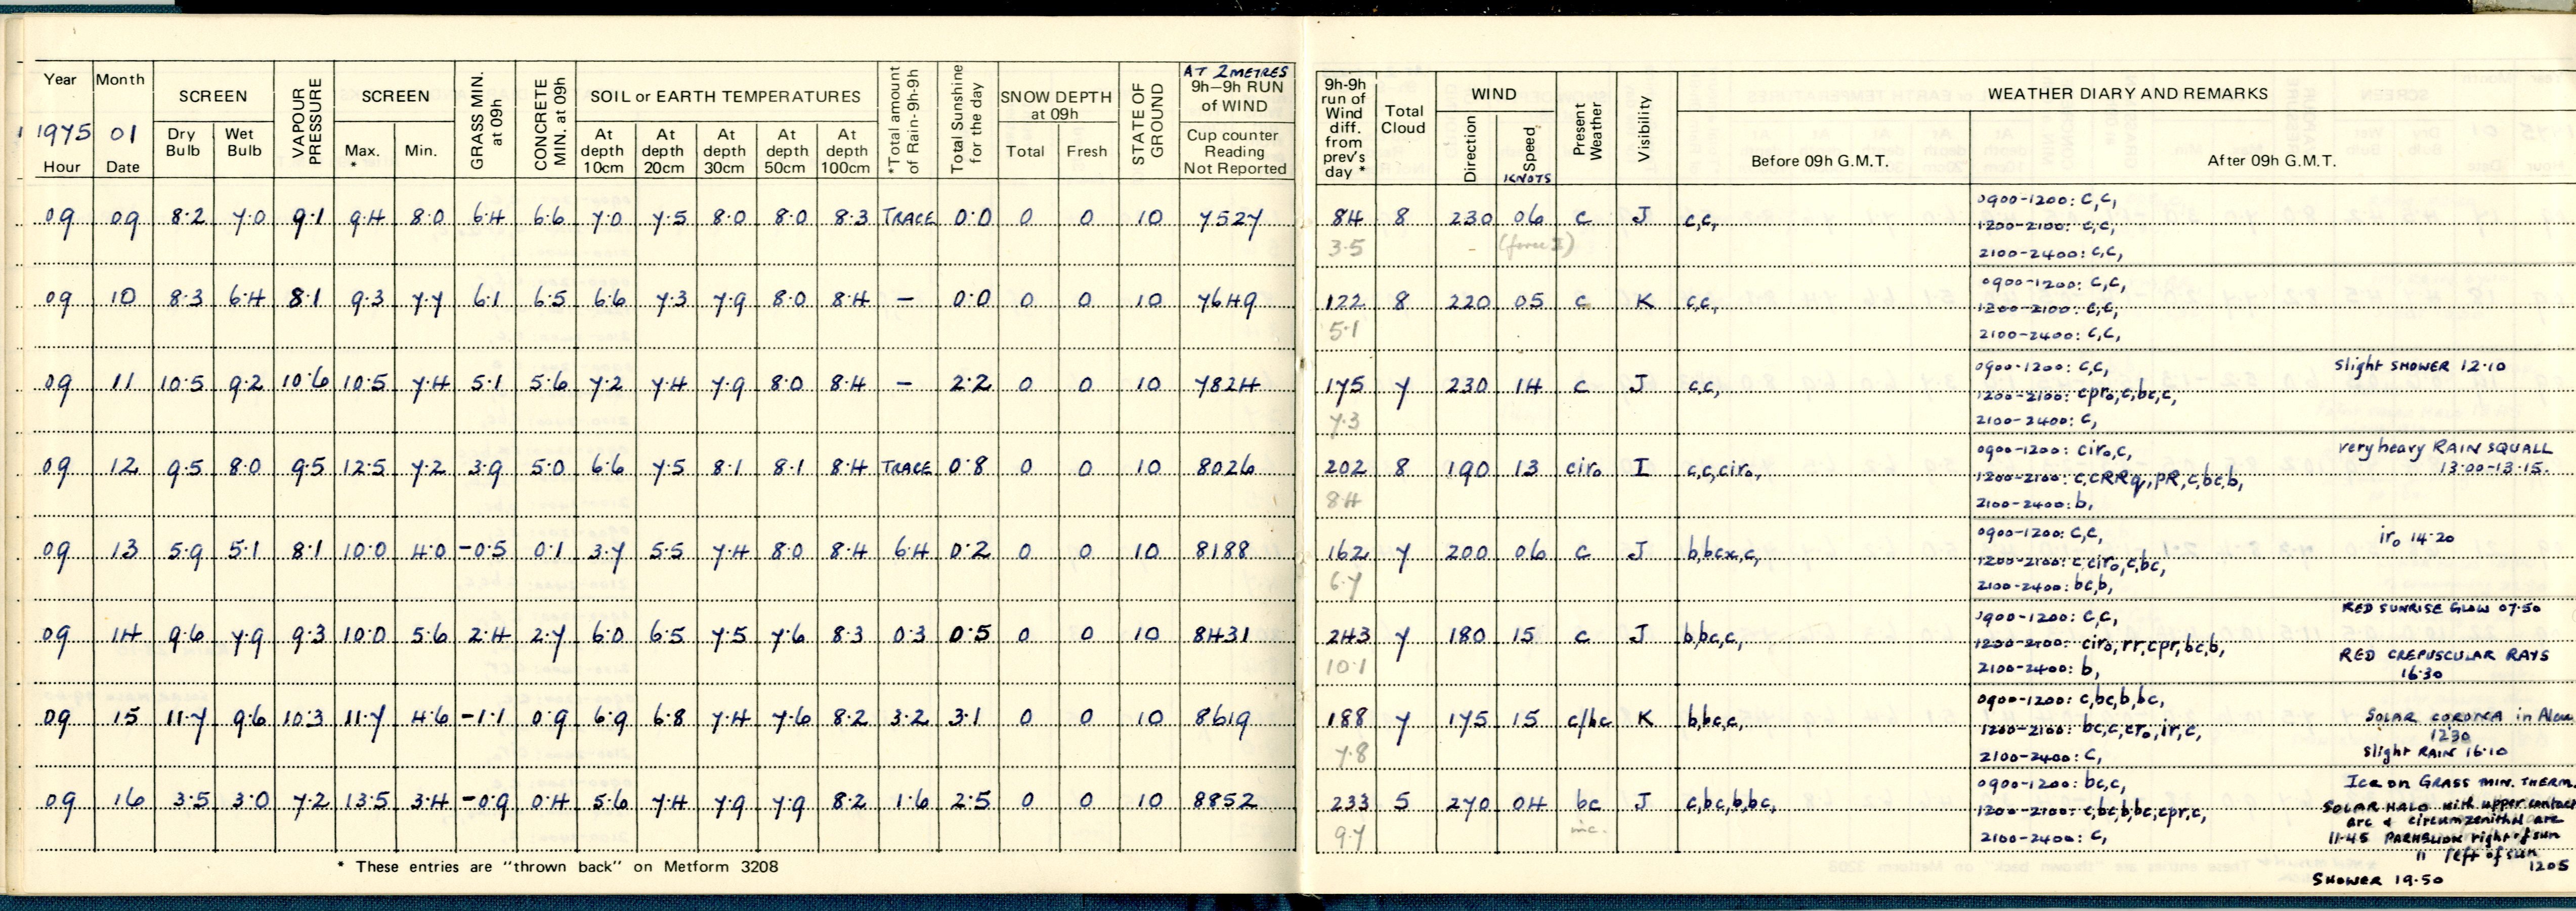 Year Month SCREEN VAPOUR PRESSURE SCREEN GRASS MIN. at 09h CONCRETE MIN. at 09h SOIL or EARTH TEMPERATURES *Total amount of Rain-9h-9h Total Sunshine for the day SNOW DEPTH at 09h STATE OF GROUND AT 2 METRES 9h–9h RUN of WIND
1975 01
Hour Date Dry Bulb Wet Bulb Max. * Min. At depth 10cm At depth 20cm At depth 30cm At depth 50cm At depth 100cm Total Fresh Cup counter Reading Not Reported
09 09 8.2 7.0 9.1 9.4 8.0 6.4 6.6 7.0 7.5 8.0 8.0 8.3 TRACE 0.0 0 0 10 7527
09 10 8.3 6.4 8.1 9.3 7.7 6.1 6.5 6.6 7.3 7.9 8.0 8.4 – 0.0 0 0 10 7649
09 11 10.5 9.2 10.6 10.5 7.4 5.1 5.6 7.2 7.4 7.9 8.0 8.4 – 2.2 0 0 10 7824
09 12 9.5 8.0 9.5 12.5 7.2 3.9 5.0 6.6 7.5 8.1 8.1 8.4 TRACE 0.8 0 0 10 8026
09 13 5.9 5.1 8.1 10.0 4.0 -0.5 0.1 3.7 5.5 7.4 8.0 8.4 6.4 0.2 0 0 10 8188
09 14 9.6 7.9 9.3 10.0 5.6 2.4 2.7 6.0 6.5 7.5 7.6 8.3 0.3 0.5 0 0 10 8431
09 15 11.7 9.6 10.3 11.7 4.6 -1.1 0.9 6.9 6.8 7.4 7.6 8.2 3.2 3.1 0 0 10 8619
09 16 3.5 3.0 7.2 13.5 3.4 -0.9 0.4 5.6 7.4 7.9 7.9 8.2 1.6 2.5 0 0 10 8852
* These entries are "thrown back" on Metform 3208
9h-9h run of Wind diff. from prev's day * Total Cloud WIND Present Weather Visibility WEATHER DIARY AND REMARKS
Direction Speed KNOTS Before 09h G.M.T. After 09h G.M.T.
0900-1200: c,c,
84 8 230 06 c J c,c, 1200-2100: c,c,
3.5 - (force 2)
2100-2400: c,c,
0900-1200: c,c,
122 8 220 05 c K c,c, 1200-2100: c,c,
5.1
2100-2400: c,c,
0900-1200: c,c, Slight SHOWER 12.10
175 7 230 14 c J c,c, 1200-2100: cpr₀,c,bc,c,
7.3 2100-2400: c,
0900-1200: cir₀,c, very heavy RAIN SQUALL
202 8 190 13 cir₀ I c,c,cir₀, 13.00-13.15.
1200-2100: c,cRRq,pR,c,bc,b,
8.4 2100-2400: b,
0900-1200: c,c, ir₀ 14.20
162 7 200 06 c J b,bcx,c, 1200-2100: c,cir₀,c,bc,
6.7 2100-2400: bc,b,
RED SUNRISE GLOW 07.50
0900-1200: c,c,
243 7 180 15 c J b,bc,c, 1200-2100: cir₀,rr,cpr,bc,b,
10.1 2100-2400: b, RED CREPUSCULAR RAYS
16.30
0900-1200: c,bc,b,bc,
188 7 175 15 c/bc K b,bc,c, SOLAR CORONA in
1200-2100: bc,c,cr₀,ir,c, 1230
7.8 2100-2400: c, Slight RAIN 16.10
0900-1200: bc,c, Ice on GRASS MIN. THERM.
233 5 270 04 bc J c,bc,b,bc, SOLAR HALO with upper contact
1200-2100: c,bc,b,bc,cpr,c, arc & circumzenithal arc
9.7 2100-2400: c, 11.45 PARHELION right of sun
" left of sun
1205
SHOWER 19.50